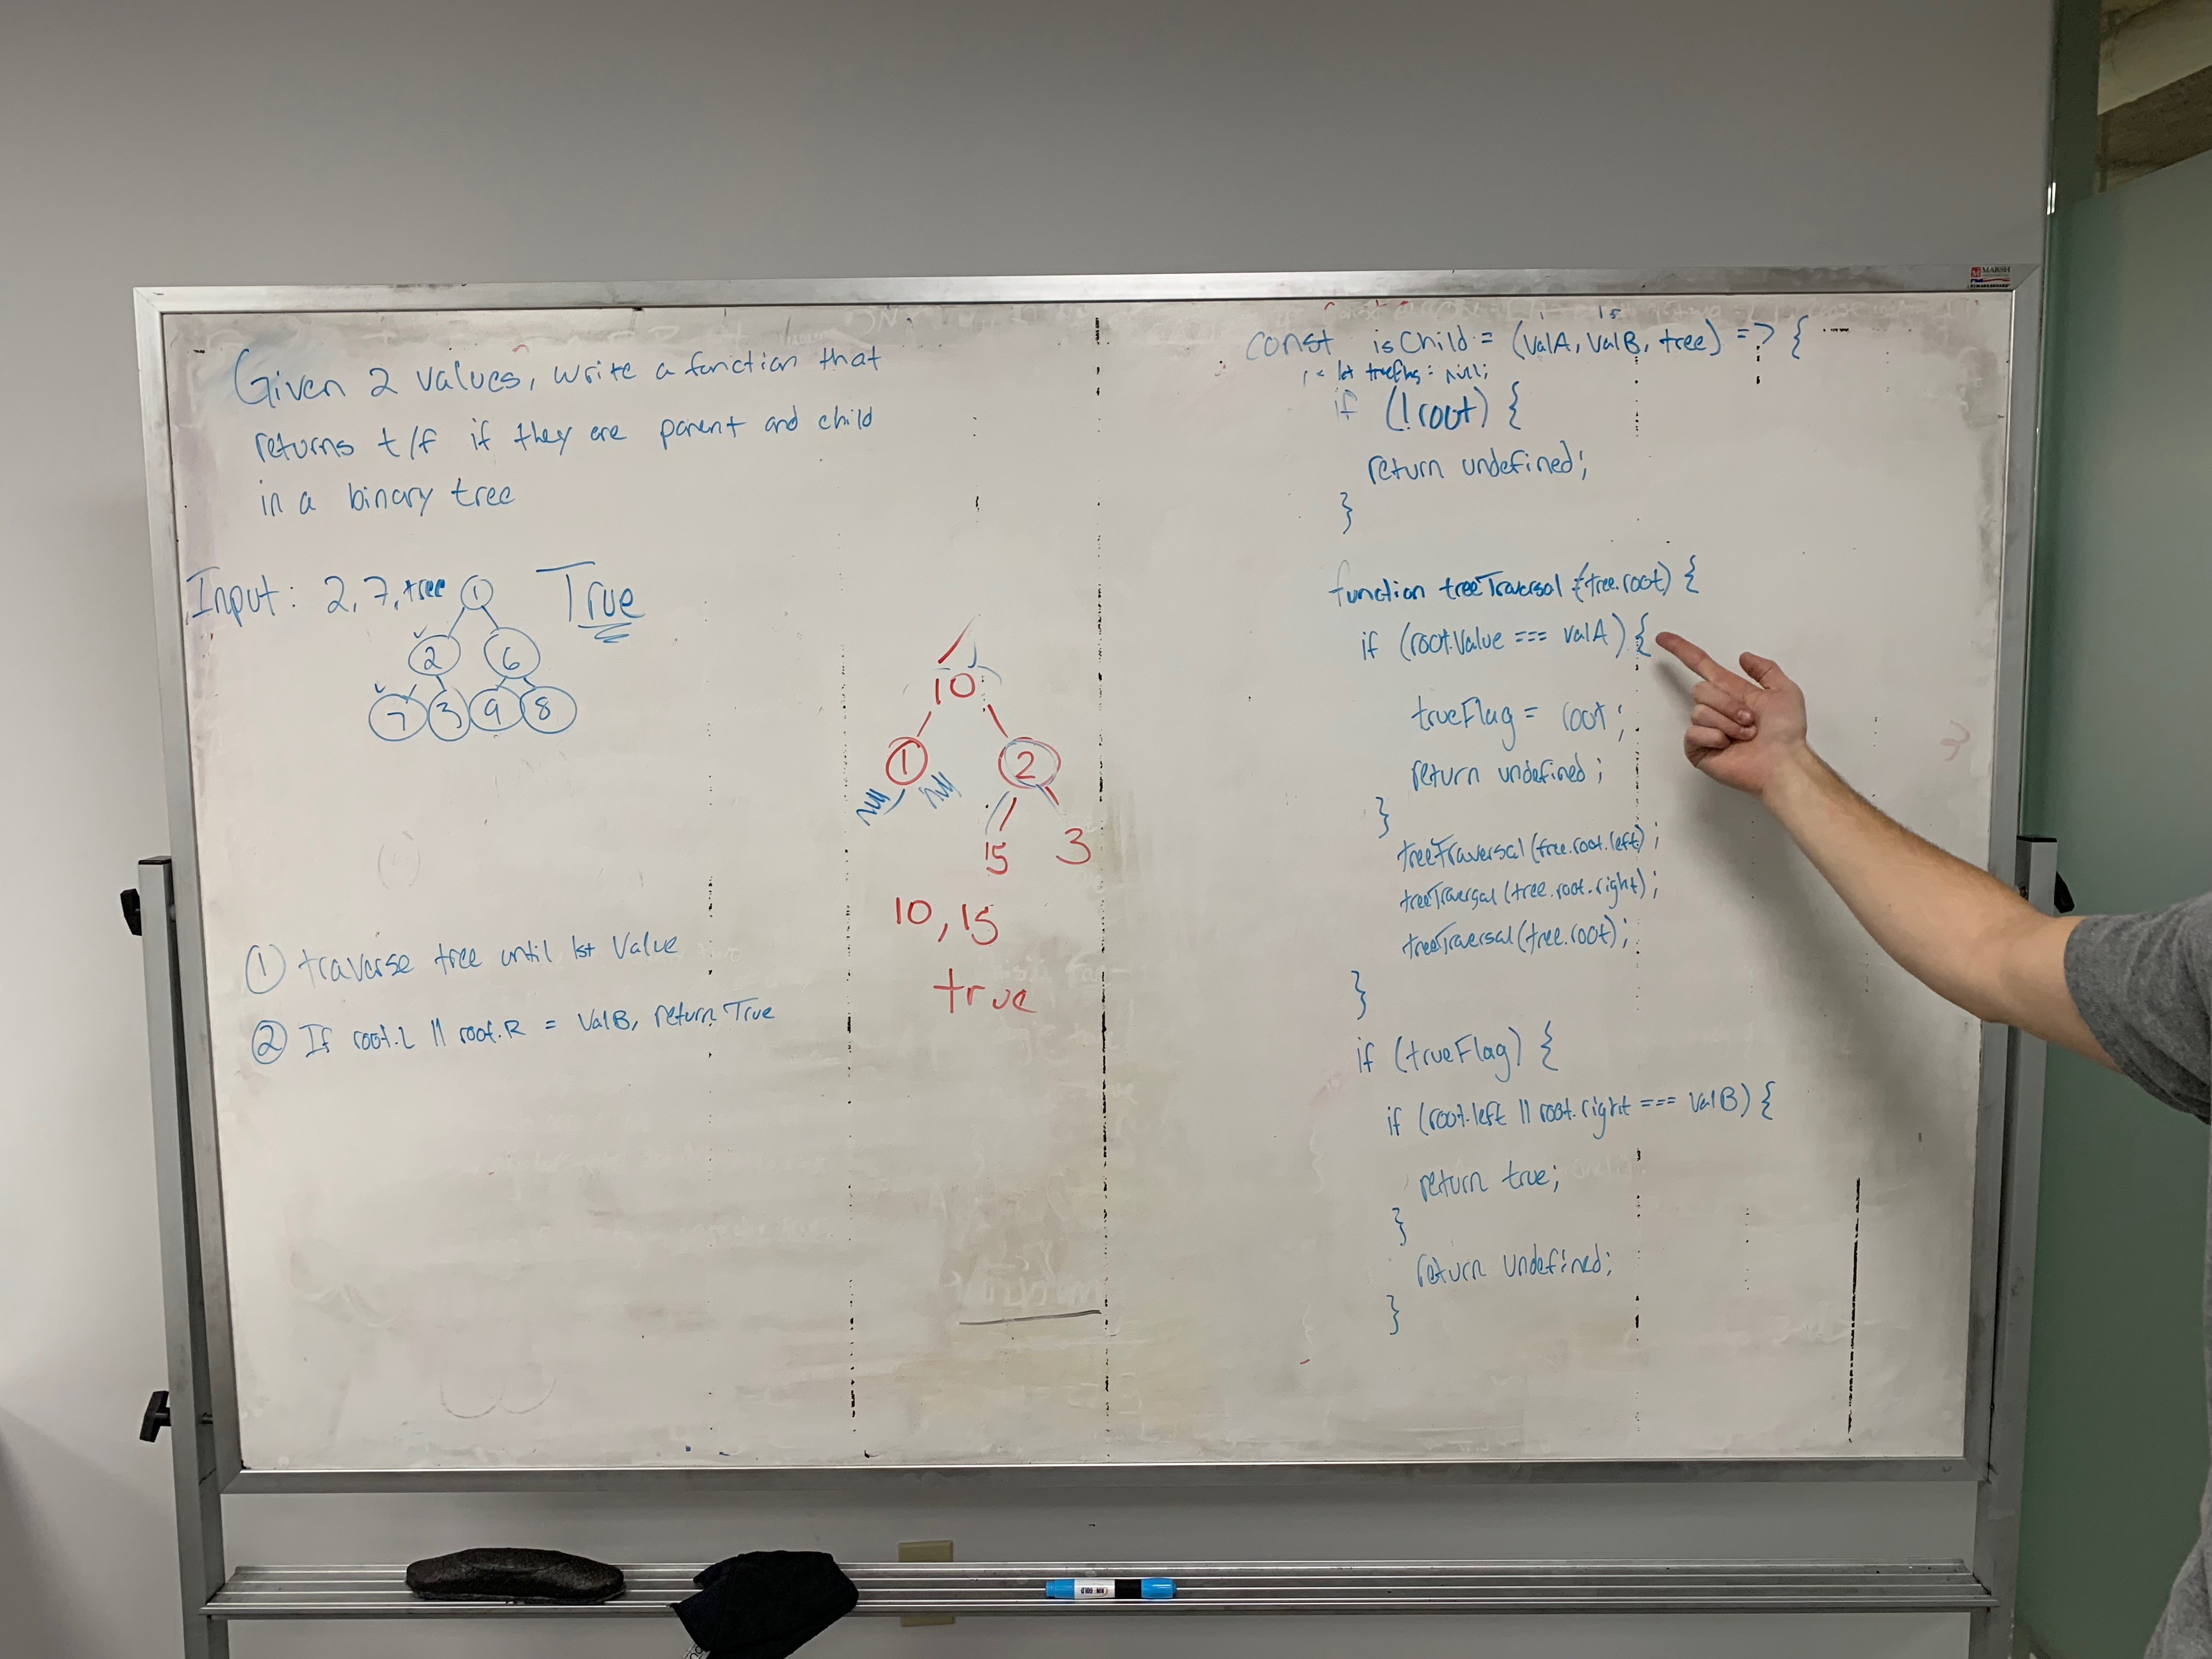 Given 2 values, write a function that
returns t/f if they are parent and child
in a binary tree
Input: 2, 7, tree
True
1
2 6
7 3 9 8
① traverse tree until 1st Value
② If root.L || root.R = ValB, return True
10
1 2
null null
15 3
10, 15
true
MARSH
15
const isChild = (valA, valB, tree) => {
let trueFlag = null;
if (!root) {
return undefined;
}
function treeTraversal (tree.root) {
if (root.Value === valA) {
trueFlag = root;
return undefined;
}
treeTraversal(tree.root.left);
treeTraversal(tree.root.right);
treeTraversal(tree.root);
}
if (trueFlag) {
if (root.left || root.right === valB) {
return true;
}
return undefined;
}